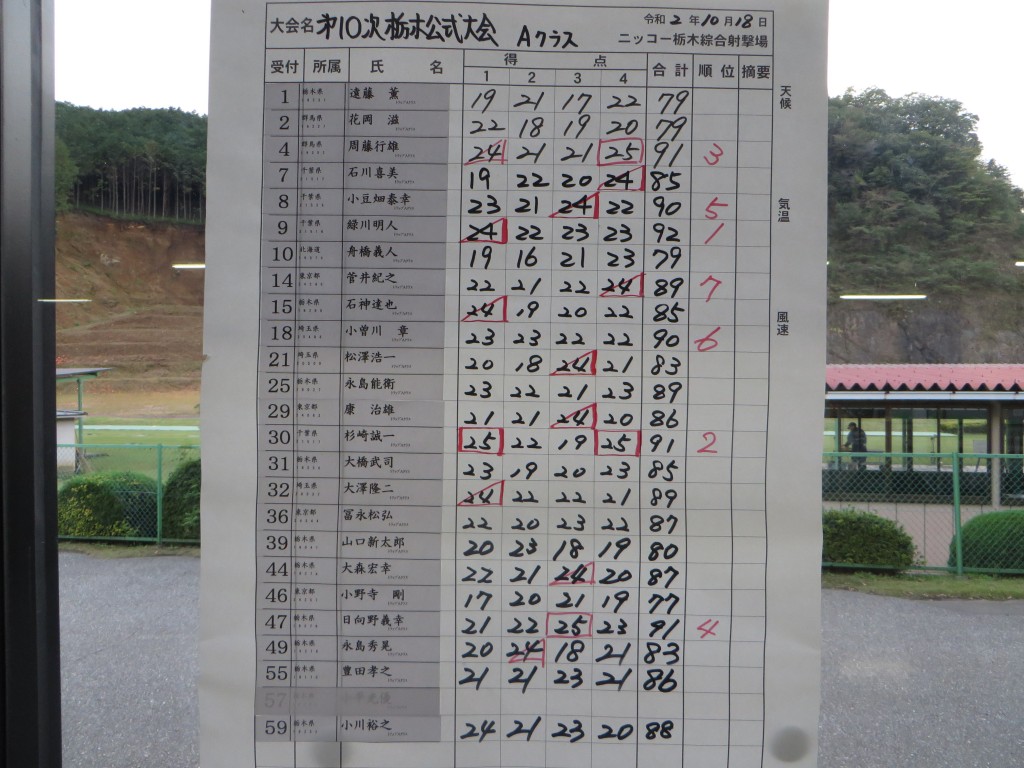 大会名 オ10次栃木公式大会 Aクラス 令和2年10月18日
ニッコー栃木綜合射撃場
受付 所属 氏名 得点 合計 順位 摘要
1 2 3 4
1 栃木県 遠藤 薫 19 21 17 22 79
2 群馬県 花岡 滋 22 18 19 20 79
4 群馬県 周藤行雄 24 21 21 25 91 3
7 千葉県 石川喜美 19 22 20 24 85
8 千葉県 小豆畑泰幸 23 21 24 22 90 5
9 千葉県 緑川明人 24 22 23 23 92 1
10 北海道 舟橋義人 19 16 21 23 79
14 東京都 菅井紀之 22 21 22 24 89 7
15 栃木県 石神達也 24 19 20 22 85
18 埼玉県 小曽川 章 23 23 22 22 90 6
21 埼玉県 松澤浩一 20 18 24 21 83
25 栃木県 永島能衛 23 22 21 23 89
29 東京都 康 治雄 21 21 24 20 86
30 千葉県 杉崎誠一 25 22 19 25 91 2
31 栃木県 大橋武司 23 19 20 23 85
32 埼玉県 大澤隆二 24 22 22 21 89
36 東京都 冨永松弘 22 20 23 22 87
39 栃木県 山口新太郎 20 23 18 19 80
44 栃木県 大森宏幸 22 21 24 20 87
46 東京都 小野寺 剛 17 20 21 19 77
47 栃木県 日向野義幸 21 22 25 23 91 4
49 栃木県 永島秀晃 20 24 18 21 83
55 栃木県 豊田孝之 21 21 23 21 86
57
59 栃木県 小川裕之 24 21 23 20 88
天候
気温
風速